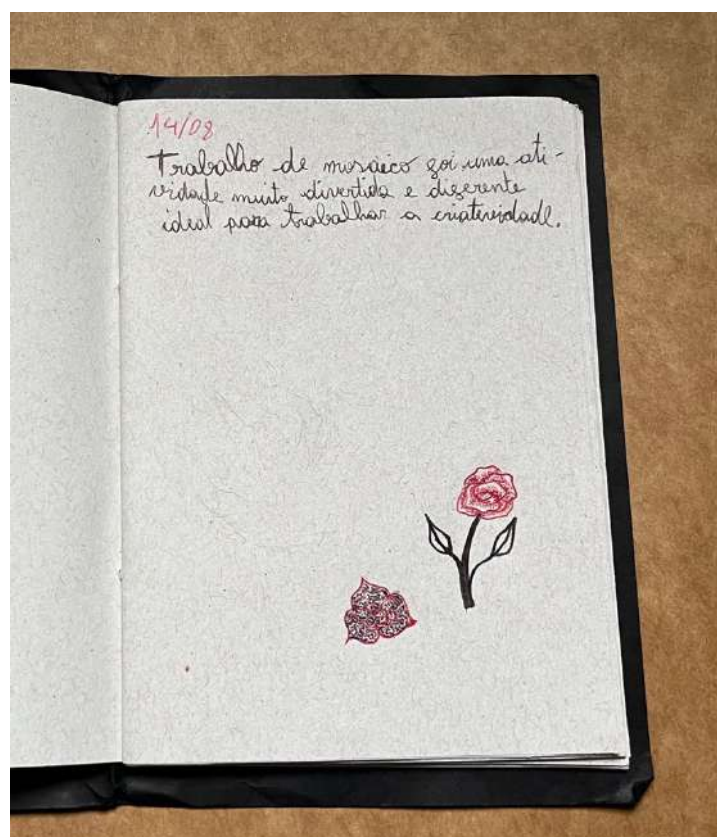 14/08
Trabalho de mosaico foi uma ati-
vidade muito divertida e diferente
ideal para trabalhar a criatividade.